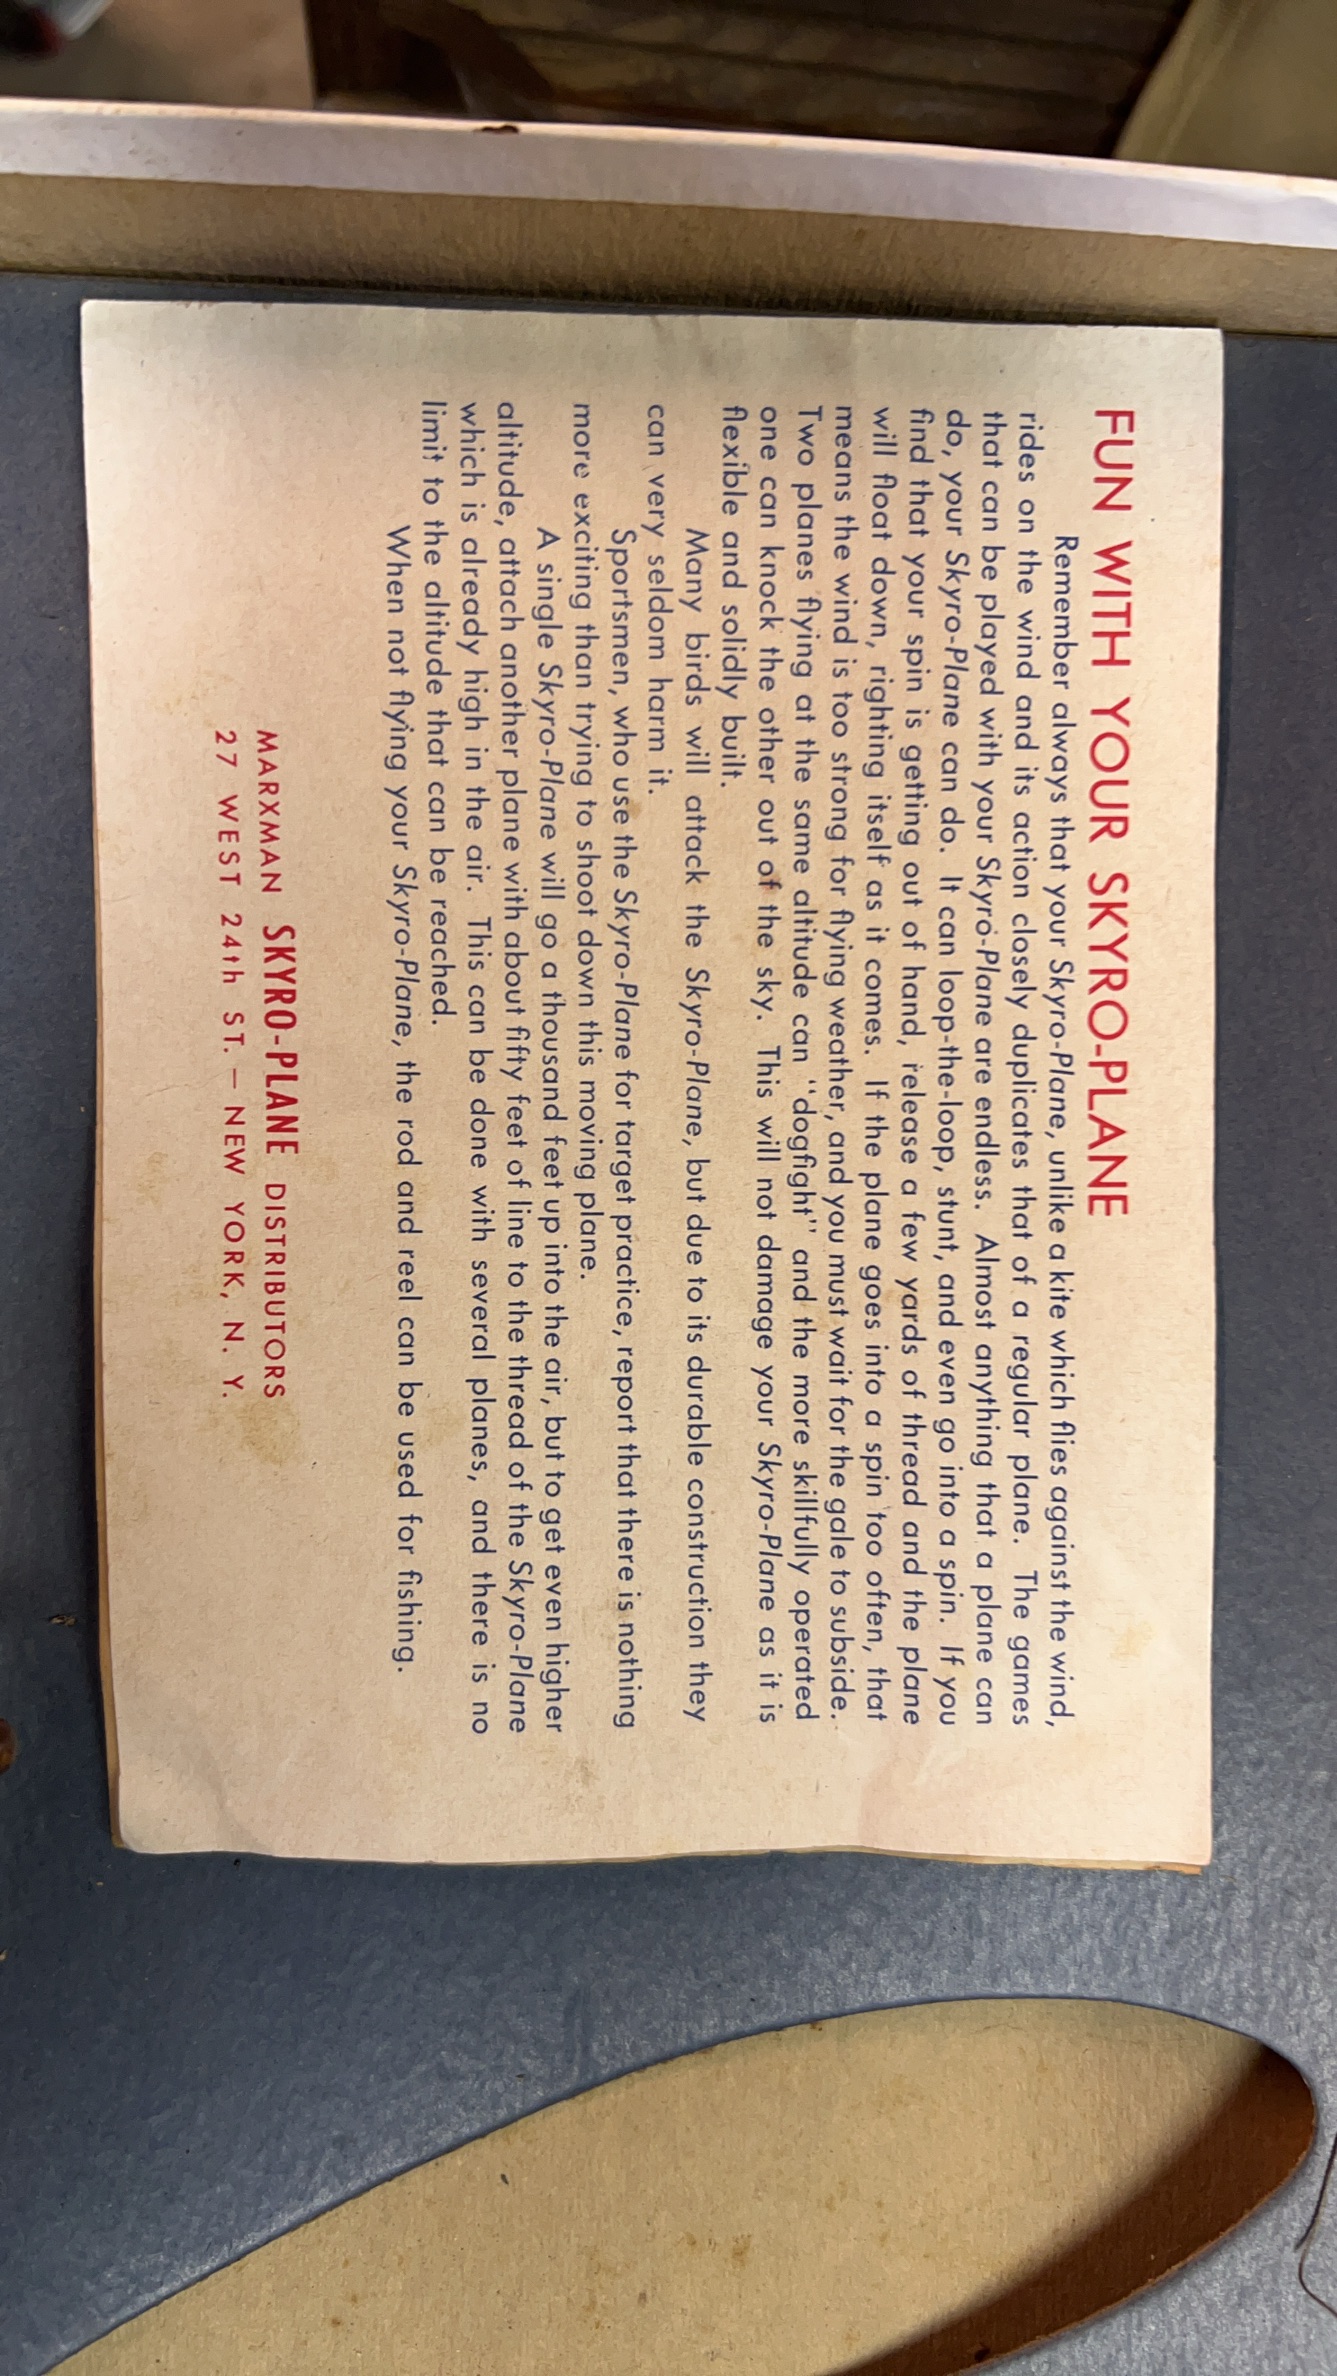 FUN WITH YOUR SKYRO-PLANE
Remember always that your Skyro-Plane, unlike a kite which flies against the wind,
rides on the wind and its action closely duplicates that of a regular plane. The games
that can be played with your Skyro-Plane are endless. Almost anything that a plane can
do, your Skyro-Plane can do. It can loop-the-loop, stunt, and even go into a spin. If you
find that your spin is getting out of hand, release a few yards of thread and the plane
will float down, righting itself as it comes. If the plane goes into a spin too often, that
means the wind is too strong for flying weather, and you must wait for the gale to subside.
Two planes flying at the same altitude can "dogfight" and the more skillfully operated
one can knock the other out of the sky. This will not damage your Skyro-Plane as it is
flexible and solidly built.
Many birds will attack the Skyro-Plane, but due to its durable construction they
can very seldom harm it.
Sportsmen, who use the Skyro-Plane for target practice, report that there is nothing
more exciting than trying to shoot down this moving plane.
A single Skyro-Plane will go a thousand feet up into the air, but to get even higher
altitude, attach another plane with about fifty feet of line to the thread of the Skyro-Plane
which is already high in the air. This can be done with several planes, and there is no
limit to the altitude that can be reached.
When not flying your Skyro-Plane, the rod and reel can be used for fishing.
MARXMAN SKYRO-PLANE DISTRIBUTORS
27 WEST 24th ST. – NEW YORK, N. Y.